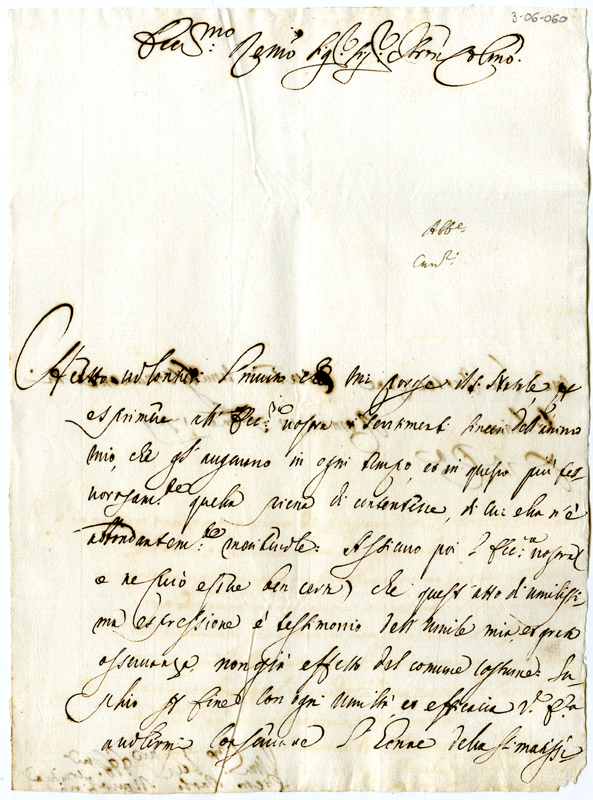 3-06-060
Ecc.mo Sig.r Sig.r Pron Colmo.
Abb.e
Accetto volontieri l'invito che mi porge il S. Natale p
esprimere all' Ecc.za vostra i sentimenti sinceri dell'animo
mio, che gl'augurano in ogni tempo, et in questo più fer-
vorosam.te quella piena di contentezze, di cui ella n'è
abbondantem.te meritevole. Assicuro poi l' Ecc.za vostra
e ne può esser ben certa) che quest'atto di umilissi-
ma espressione è testimonio dell'umile mia, et
osservanza, non già effetto del comune costume. Su
plico p fine con ogni umiltà et efficacia V.ra Ecc.za
a volermi conservare l' della stimatissi-